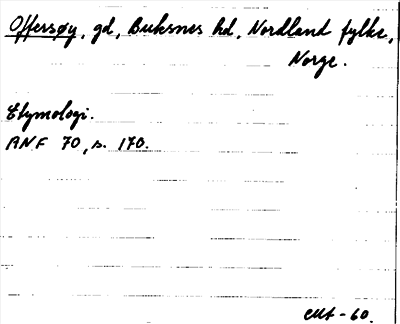 Offersøy, gd, Buksnes hd, Nordland fylke,
Norge.
Etymologi.
ANF 70, s. 170.
-60.